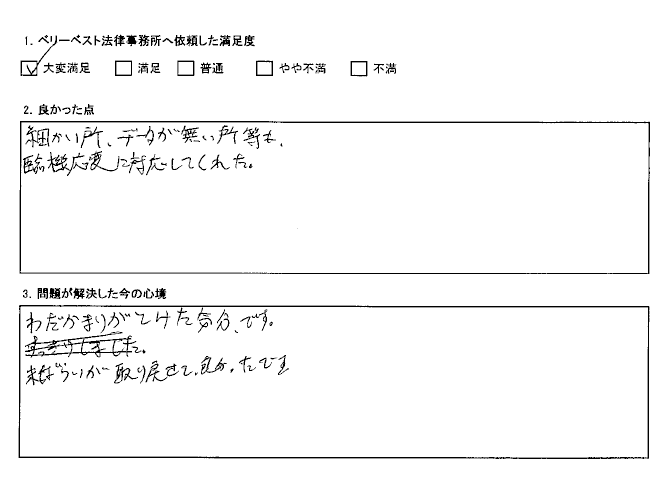 1. ベリーベスト法律事務所へ依頼した満足度
大変満足 満足 普通 やや不満 不満
2. 良かった点
細かい所、データが無い所等も、
臨機応変に対応してくれた。
3. 問題が解決した今の心境
わだかまりがとけた気分、です。
すっきりしました。
未ばらいが取り戻せて、良かったです